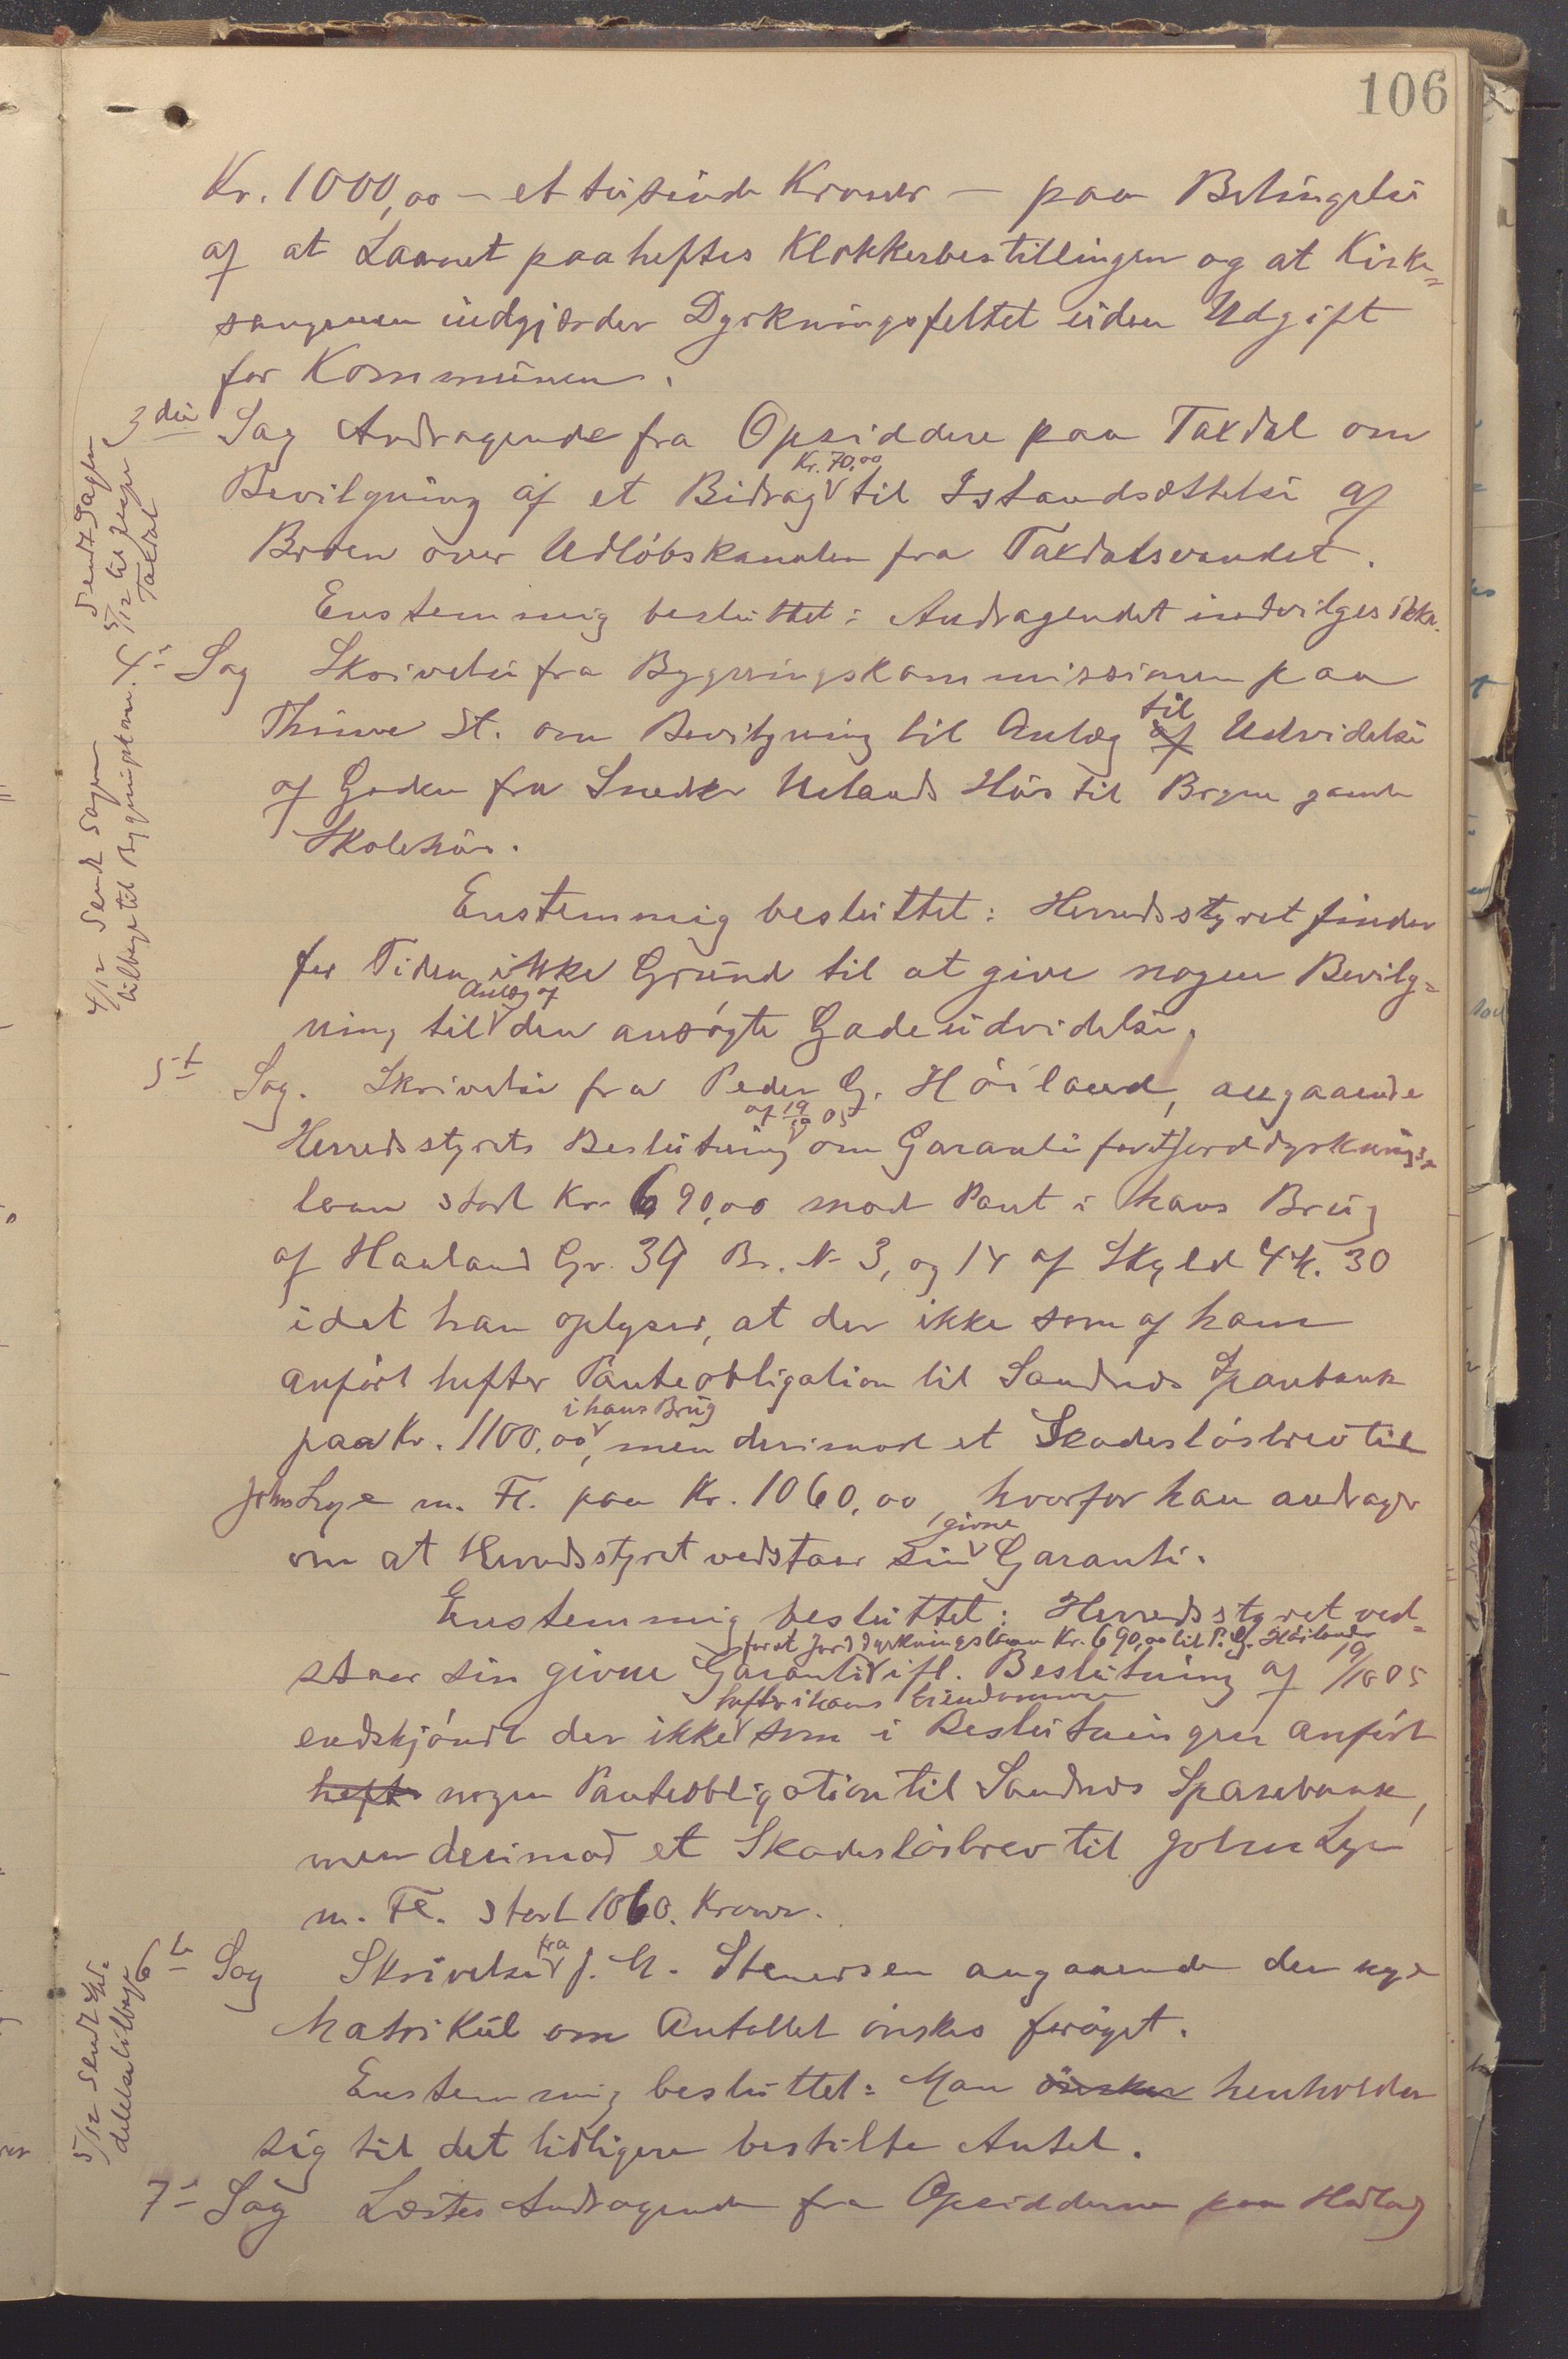 106
Kr. 1000,00 – et tusinde Kroner – paa Betingelse
af at Laanet paaheftes Klokkerbestillingen og at Kirke=
sangeren indgjærder Dyrkningsfeltet uden Udgift
for Kommunen.
3die Sag Andragende fra Opsiddere paa Taxdal om
Bevilgning af et Bidrag Kr. 70,00 til Istandsættelse af
Broen over Udløbskanalen fra Taxdalsvandet.
Enstemmig besluttet: Andragendet indvilges ikke.
4de Sag Skrivelse fra Bygningskommissionen paa
Thime St. om Bevilgning til Anlæg af til Udvidelse
af Gaden fra Snedker Uelands Hus til Bryne gamle
Skolehus.
Enstemmig besluttet: Herredsstyret finder
for Tiden ikke Grund til at give nogen Bevilg=
ning til Anlæg af den ansøgte Gadeudvidelse.
5te Sag. Skrivelse fra Peder G. Höiland, angaaende
Herredsstyrets Beslutning af 19/10 05 om Garanti for et Jorddyrknings=
laan stort Kr. 690,00 mod Pant i hans Brug
af Haaland Gr. 39 Br. N 3, og 14 af Skyld 4 M. 30
idet han oplyser, at der ikke som af ham
anført hefter Panteobligation til Sandnes Sparebank
paa Kr. 1100,00 i hans Brug, men derimod et Skadesløsbrev til
John Lye m. Fl. paa Kr. 1060,00, hvorfor han andrager
om at Herredsstyret vedstaar sin givne Garanti.
Enstemmig besluttet: Herredsstyret ved=
staar sin givne Garanti for et Jorddyrkningslaan Kr. 690,00 til P. G. Höiland ifl. Beslutning af 19/10 05
endskjøndt der ikke hefter i hans Eiendomme som i Beslutningen anført
hefter nogen Panteobligation til Sandnes Sparebank,
men derimod et Skadesløsbrev til John Lye
m. Fl. stort 1060. Kroner.
6te Sag Skrivelse fra J. M. Stenersen angaaende den nye
Matrikul om Antallet ønskes forøget.
Enstemmig besluttet: Man ønsker henholder
sig til det tidligere bestilte Antal.
7de Sag Læstes Andragende fra Opsidderne paa Hadland
Sendt Sagen
5/12 til
Taxdal
4/12 Sendt Sagen
tilbage til Bygningskom.
5/12 Sendt
tilbage